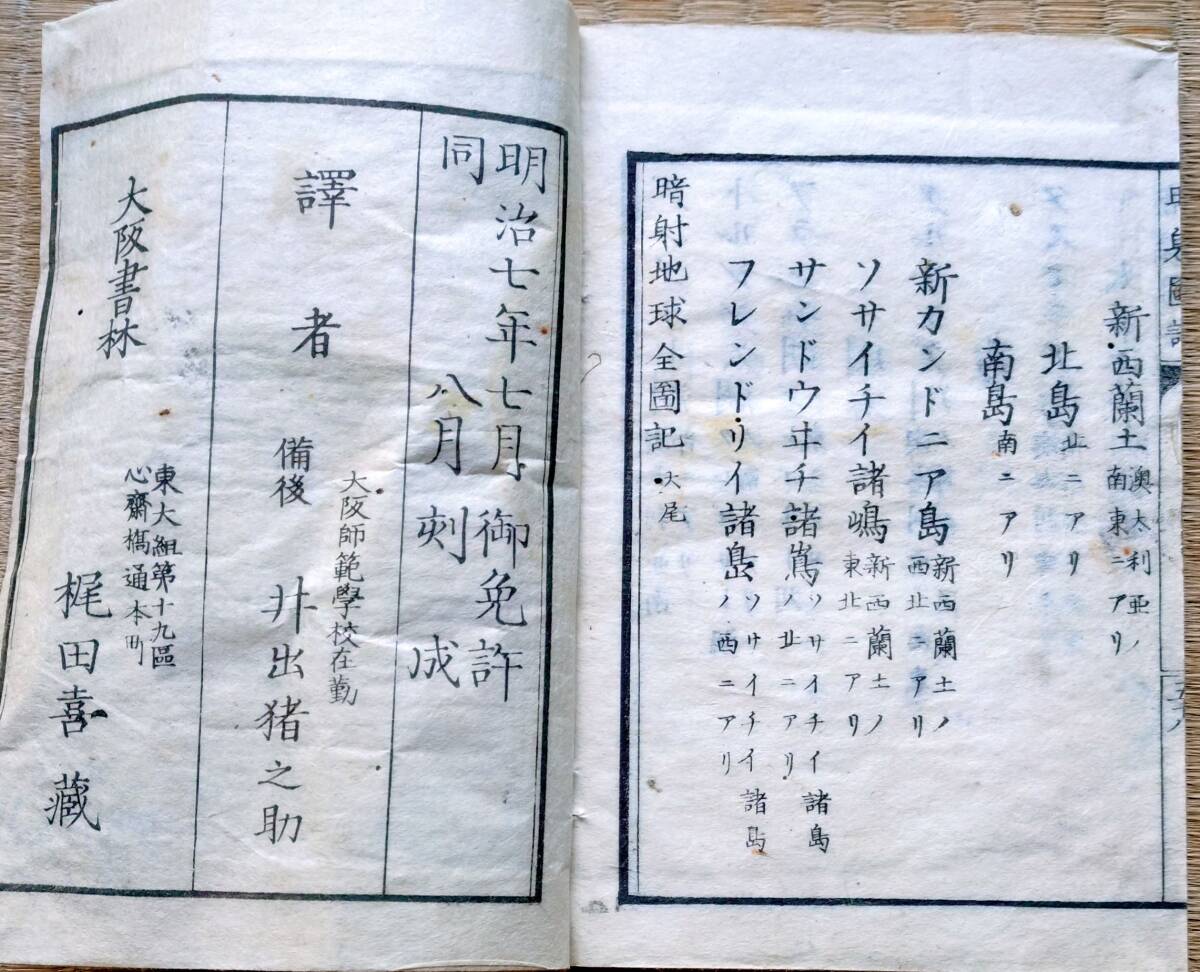 新西蘭土 澳太利亜ノ南東ニアリ
北島 北ニアリ
南島 南ニアリ
新カンドニア島 新西蘭土ノ西北ニアリ
ソサイチイ諸嶋 新西蘭土ノ東北ニアリ
サンドウヰチ諸嶌 ソサイチイ諸島ノ北ニアリ
フレンドリイ諸島 ソサイチイ諸島ノ西ニアリ
暗射地球全圖記 大尾
明治七年七月御免許
同 八月刻成
大阪師範學校在勤
譯者 備後 井出猪之助
大阪書林
東大組第十九區
心齋橋通本町
梶田喜藏